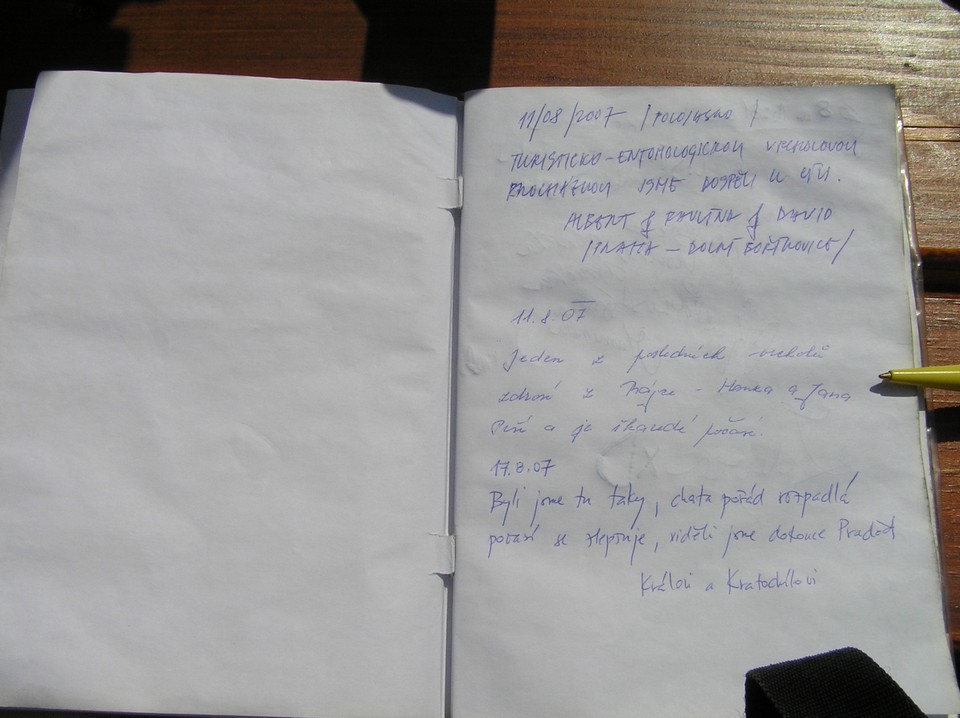 11/08/2007 / POLOJASNO /
TURISTICKO-ENTOMOLOGICKOU VRCHOLOVOU
PROCHÁZKOU JSME DOSPĚLI K CÍLI.
ALBERT & PAVLÍNA & DAVID
/PRAHA - DOLNÍ BOŘÍKOVICE/
11.8.07
Jeden z posledních vrcholů
zdraví z - Hanka a Jana
Prší a je škaredé počasí.
17.8.07
Byli jsme tu taky, chata pořád rozpadlá
počasí se zlepšuje, viděli jsme dokonce Praděd
Královi a Kratochvílovi